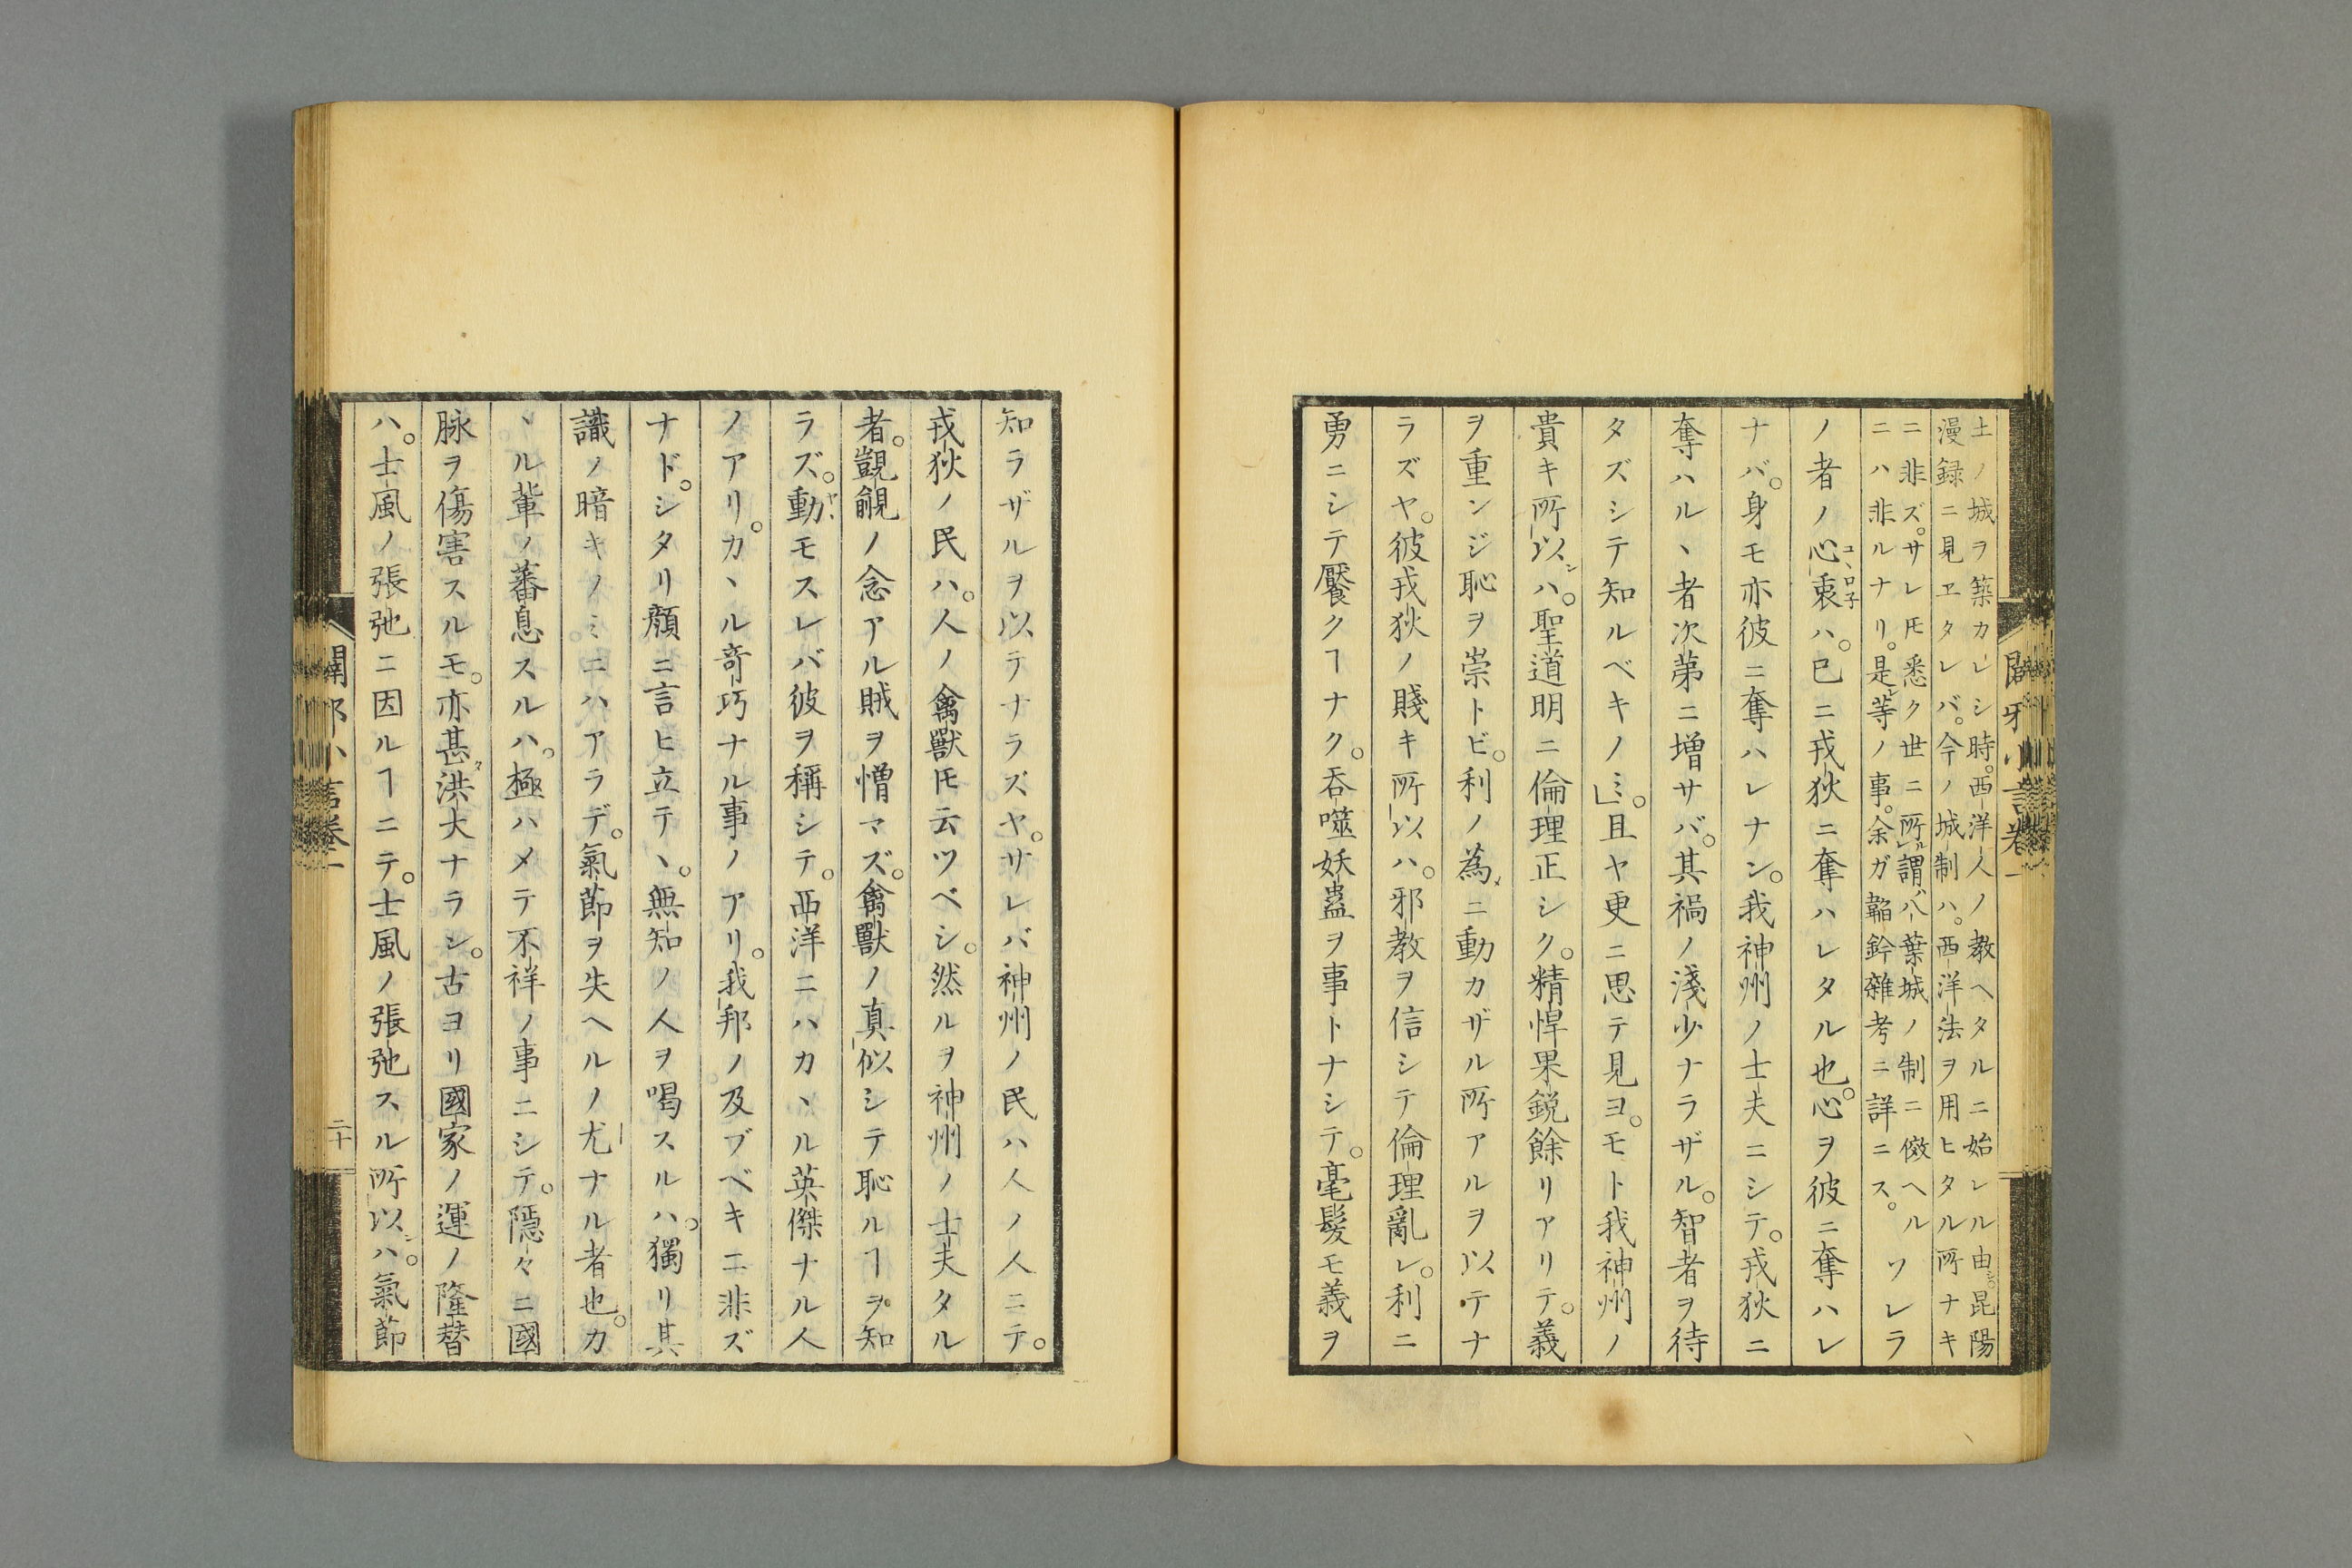 土ノ城ヲ築カレシ時。西洋人ノ教ヘタルニ始レル由シ。昆陽
漫録ニ見ヱタレバ。今ノ城制ハ。西洋法ヲ用ヒタル所ナキ
ニ非ズ。サレ𪜈悉ク世ニ所謂ル八葉城ノ制ニ傚ヘル
ニハ非ルナリ。是レ等ノ事。余ガ韜鈐雜考ニ詳ニス。
ソレラ
ノ者ノ心衷ハ。已ニ戎狄ニ奪ハレタル也。心ヲ彼ニ奪ハレ
ナバ。身モ亦彼ニ奪ハレナン。我神州ノ士夫ニシテ。戎狄ニ
奪ハルヽ者次第ニ増サバ。其禍ノ淺少ナラザル。智者ヲ待
タズシテ知ルベキノミ。」且ヤ更ニ思テ見ヨ。モト我神州ノ
貴キ所以ハ。聖道明ニ倫理正シク。精悍果鋭餘リアリテ。義
ヲ重ンジ恥ヲ崇トビ。利ノ為メニ動カザル所アルヲ以テナ
ラズヤ。彼戎狄ノ賤キ所以ハ。邪教ヲ信シテ倫理亂レ。利ニ
勇ニシテ饜クヿナク。呑噬妖蠱ヲ事トナシテ。毫髮モ義ヲ
闢邪小言卷一
知ラザルヲ以テナラズヤ。サレバ神州ノ民ハ人ノ人ニテ。
戎狄ノ民ハ。人ノ禽獸𪜈云ツベシ。然ルヲ神州ノ士夫タル
者。覬覦ノ念アル賊ヲ憎マズ。禽獸ノ真似シテ恥ルヿヲ知
ラズ。動モスレバ彼ヲ稱シテ。西洋ニハカヽル英傑ナル人
ノアリ。カヽル奇巧ナル事ノアリ。我邦ノ及ブベキニ非ズ
ナド。シタリ顔ニ言ヒ立テヽ。無知ノ人ヲ喝スルハ。獨リ其
識ノ暗キノミニハアラデ。氣節ヲ失ヘルノ尤ナル者也。カ
ヽル輩ノ蕃息スルハ。極ハメテ不祥ノ事ニシテ。隱々ニ國
脉ヲ傷害スルモ。亦甚タ洪大ナラン。古ヨリ國家ノ運ノ隆替
ハ。士風ノ張弛ニ因ルヿニテ。士風ノ張弛スル所以ハ。氣節
闢邪小言卷一
二十